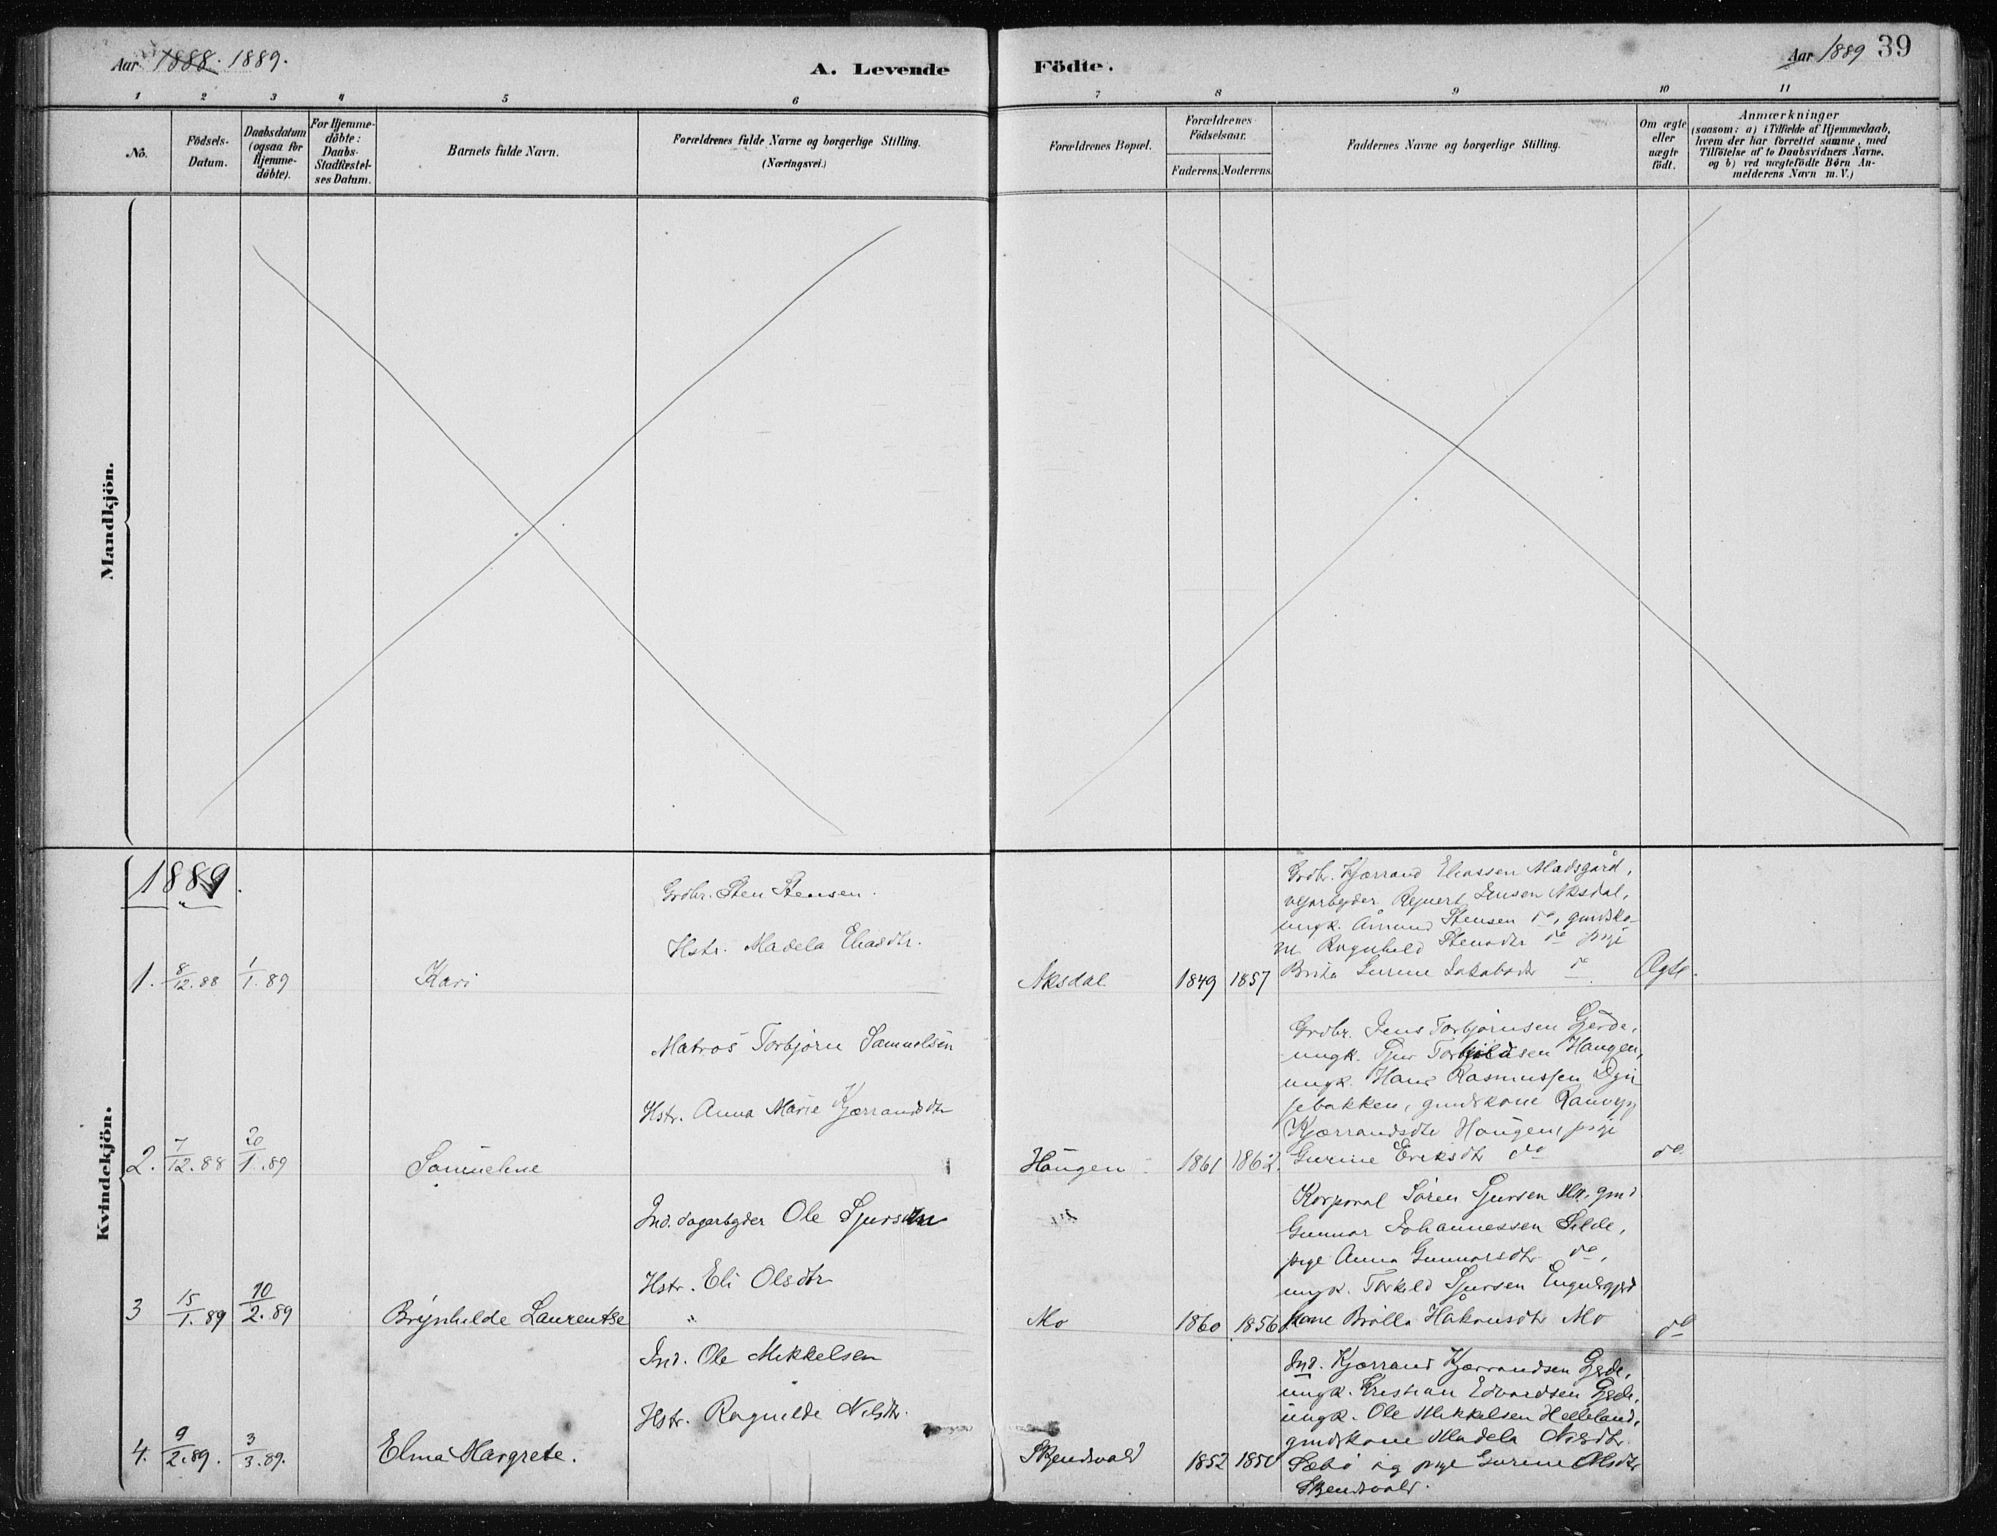 Aar 1888. 1889.
A. Levende
Födte.
Aar 1889
39
1
2
3
4
5
6
7
8
9
10
11
No.
Födsels-
Datum.
Daabsdatum
(ogsaa for
Hjemme-
döbte).
For Hjemme-
döbte:
Daabs-
Stadfæstel-
ses Datum.
Barnets fulde Navn.
Forældrenes fulde Navne og borgerlige Stilling.
(Næringsvei.)
Forældrenes Bopæl.
Forældrenes
Födselsaar.
Faderens.
Moderens.
Faddernes Navne og borgerlige Stilling.
Om ægte
eller
uægte
födt.
Anmærkninger
(saasom: a) i Tilfælde af Hjemmedaab,
hvem der har forrettet samme, med
Tilföielse af to Daabsvidners Navne,
og b) ved uægtefödte Børn An-
melderens Navn m. V.)
Mandkjön.
Kvindekjön.
1889.
1.
8/12.88
1/1.89
Kari
Grdbr. Sten Stensen.
Hstr. Madela Eliasdtr.
Aksdal
1849
1857
Grdbr. Kjærrand Eliassen Madsgård,
vejarbejder Rejnert Jensen Aksdal,
ungk. Åmund Stensen do, gmdsko-
ne Ragnhild Stensdtr do pige
Brita Gurine Jakobsdtr do
Ægte.
2.
7/12.88
20/1.89
Samueline
Matros Torbjørn Samuelsen
Hstr. Anna Marie Kjærrandsdtr
Haugen
1861
1862.
Grdbr. Jens Torbjørnsen Gjerde,
ungk. Sjur Torkildsen Haugen,
ungk. Hans Rasmussen
gmdskone
Kjærrandsdtr Haugen, pige
Gurine Eriksdtr do
do.
3
15/1.89
10/2.89
Brynhilde Laurentse
Ind. dagarbejder Ole Sjursen
Hstr. Eli Olsdtr
"
Mo
1860
1856
Korporal Søren Sjursen Mo, gmd
Gunnar Johannessen Silde,
pige Anna Gunnarsdtr do,
ungk. Torkild Sjursen
kone Brølla Håkonsdtr Mo
do
4.
9/2.89.
3/3.89.
Elma Margrete.
Ind. Ole Mikkelsen
Hstr. Ragnilde Nilsdtr.
Skjendsvold
1852
1850
Ind. Kjærrand Kjærrandsen Gjerde,
ungk. Kristian Edvardsen Gjerde,
ungk. Ole Mikkelsen Helleland,
gmdskone Madela Nilsdtr.
Sæbø og pige Gurine Olsdtr
Skjendsvold.